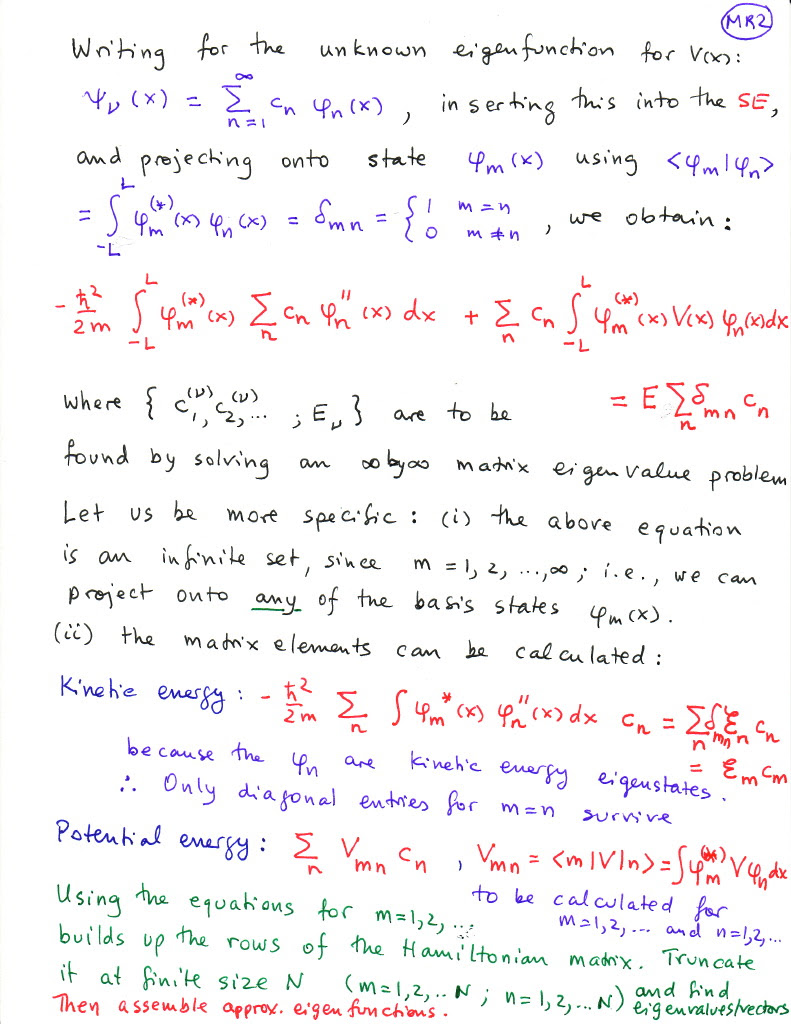 MR2
Writing for the unknown eigenfunction for V(x):
ψ_ν(x) = Σ_{n=1}^{∞} c_n φ_n(x) , inserting this into the SE,
and projecting onto state φ_m(x) using <φ_m|φ_n>
= ∫_{-L}^{L} φ_m^{(*)}(x) φ_n(x) = δ_{mn} = { 1 m=n 0 m≠n , we obtain:
- ħ²/2m ∫_{-L}^{L} φ_m^{(*)}(x) Σ_n c_n φ_n''(x) dx + Σ_n c_n ∫_{-L}^{L} φ_m^{(*)}(x) V(x) φ_n(x)dx
= E Σ_n δ_{mn} c_n
where { c_1^{(ν)}, c_2^{(ν)}, ... ; E_ν } are to be
found by solving an ∞ by ∞ matrix eigenvalue problem
Let us be more specific: (i) the above equation
is an infinite set, since m = 1, 2, ...,∞ ; i.e., we can
project onto any of the basis states φ_m(x).
(ii) the matrix elements can be calculated:
Kinetic energy: - ħ²/2m Σ_n ∫ φ_m^*(x) φ_n''(x) dx c_n = Σ_n δ_{mn} Ɛ_n c_n
= Ɛ_m c_m
because the φ_n are kinetic energy eigenstates.
∴ Only diagonal entries for m=n survive
Potential energy: Σ_n V_{mn} c_n , V_{mn} = <m|V|n> = ∫ φ_m^{(*)} V φ_n dx
to be calculated for
m=1,2,... and n=1,2,...
Using the equations for m=1,2,...
builds up the rows of the Hamiltonian matrix. Truncate
it at finite size N (m=1,2,..N ; n=1,2,...N) and find
eigenvalues/vectors
Then assemble approx. eigenfunctions.